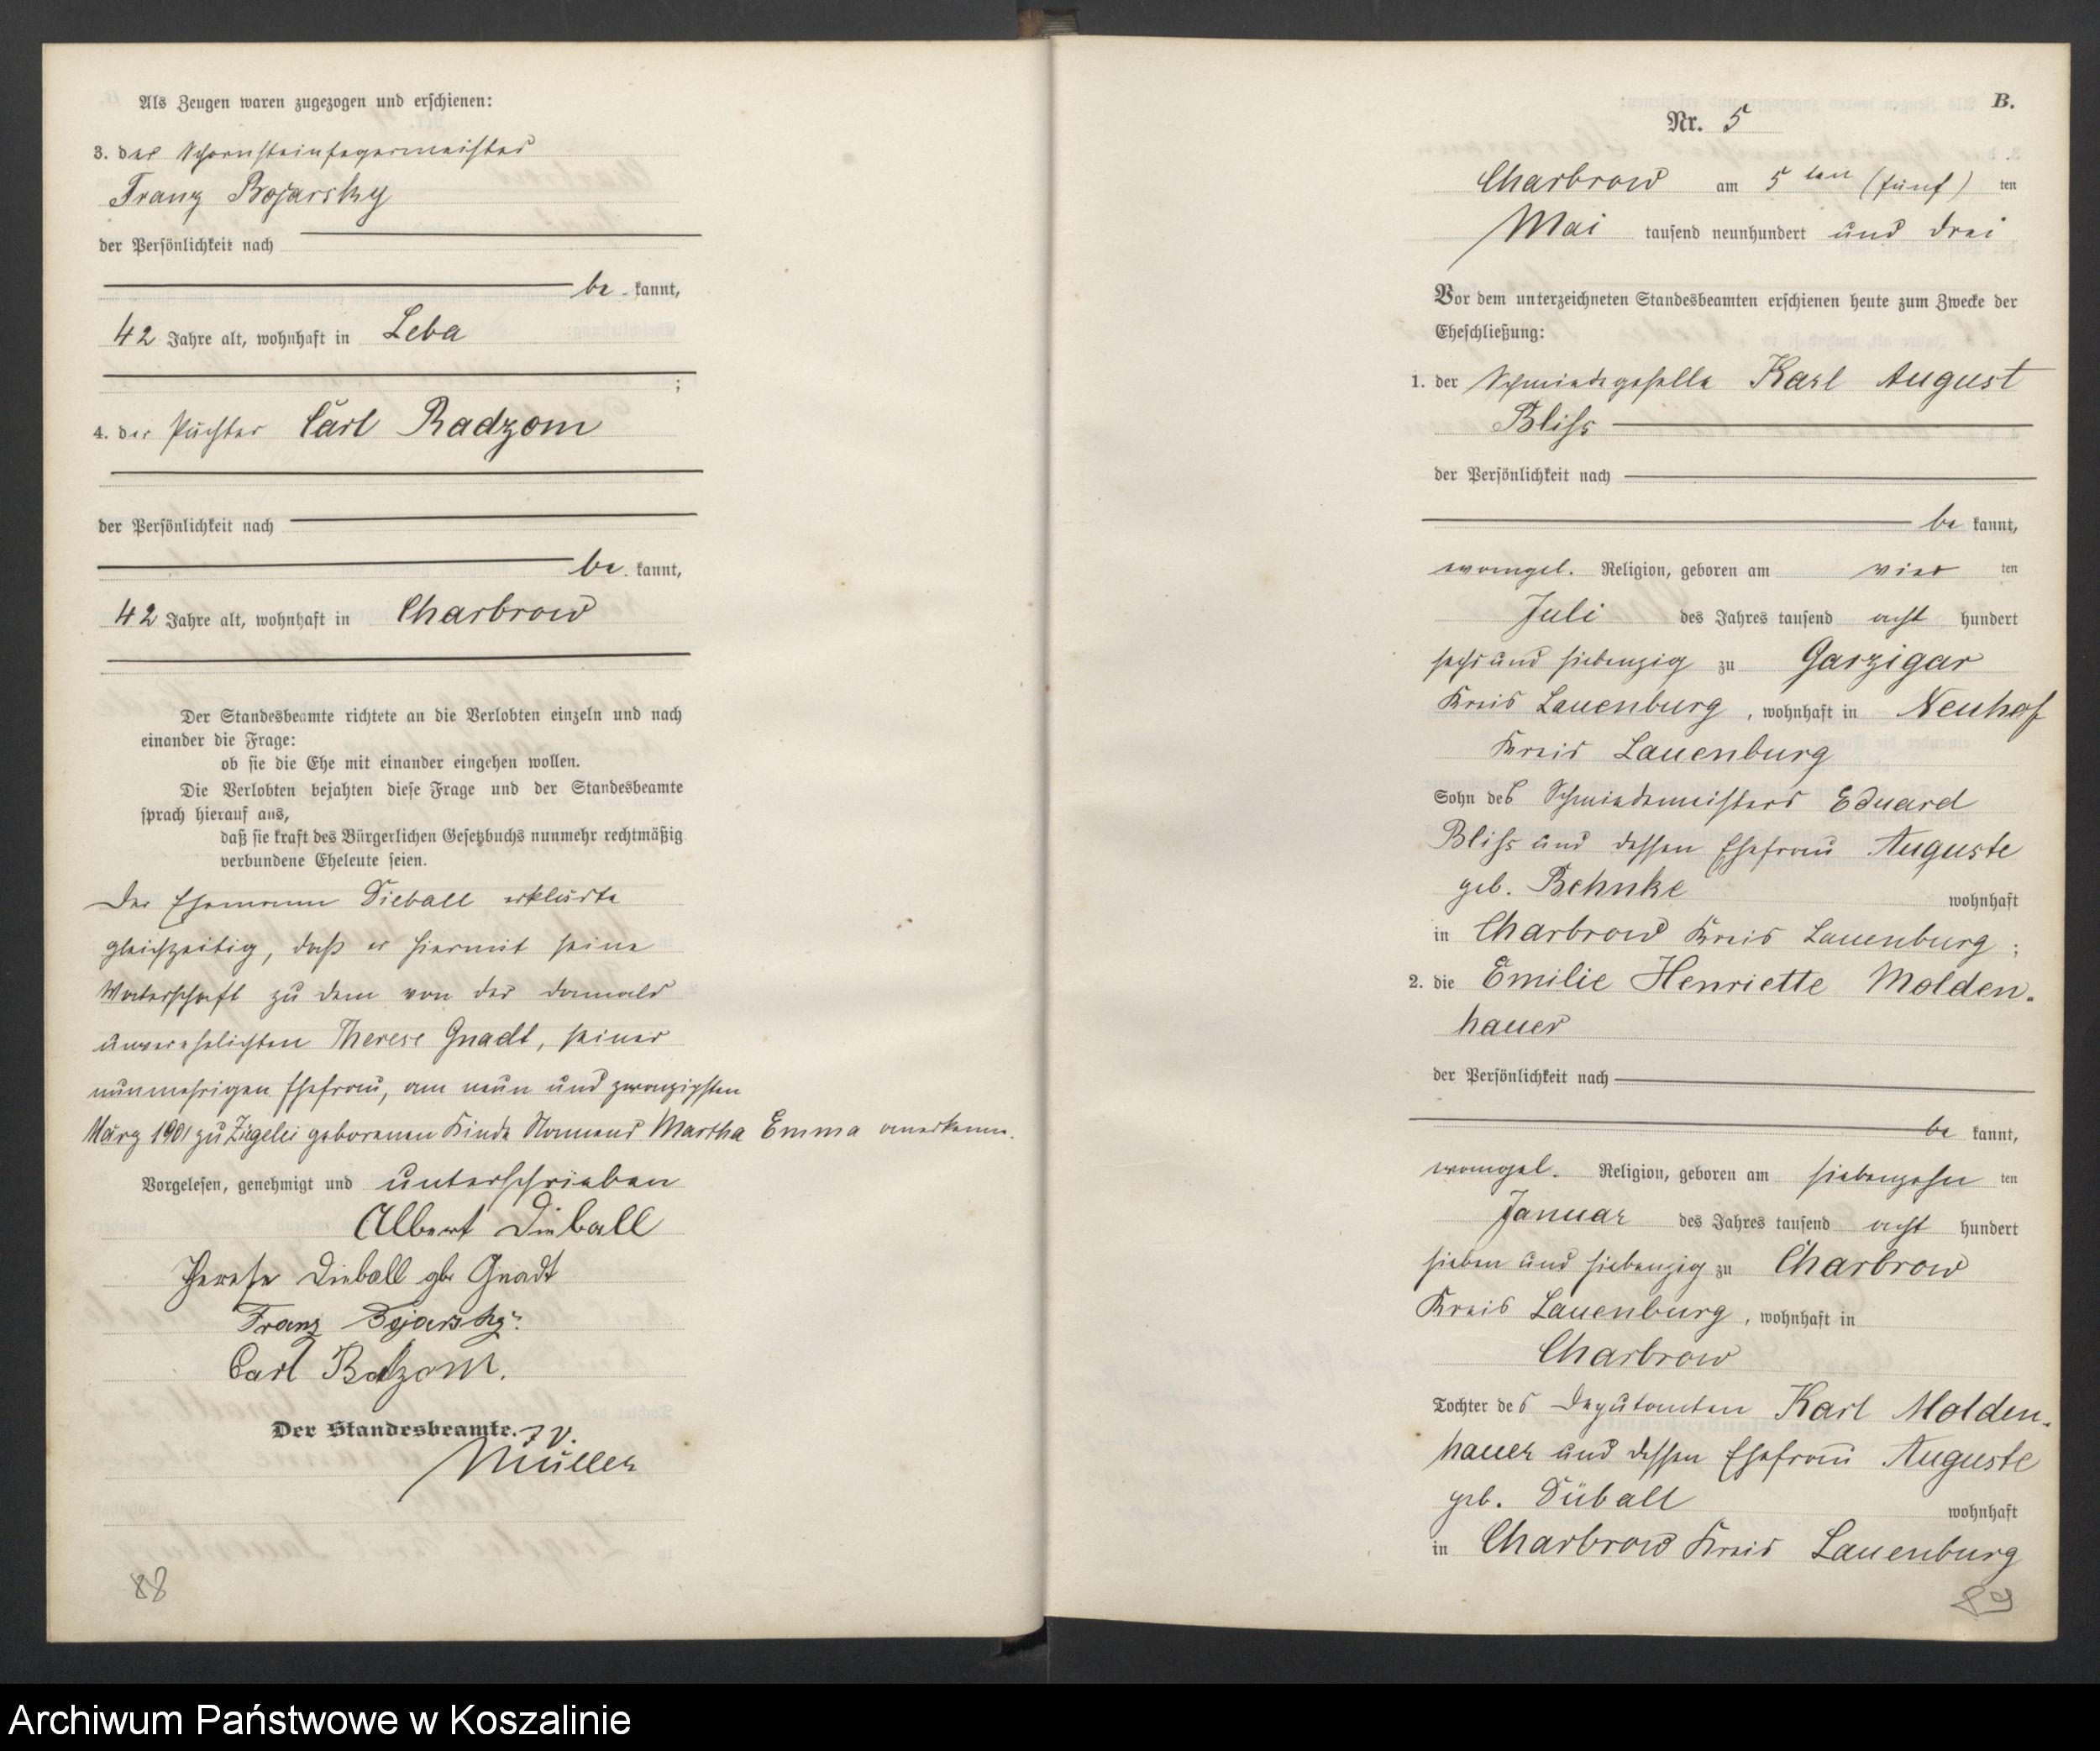 Als Zeugen waren zugezogen und erschienen:
3. der Schornsteinfegermeister
Franz Bojarsky
der Persönlichkeit nach
be kannt,
42 Jahre alt, wohnhaft in Leba
;
4. der Pächter Carl Radzom
der Persönlichkeit nach
be kannt,
42 Jahre alt, wohnhaft in Charbrow
Der Standesbeamte richtete an die Verlobten einzeln und nach
einander die Frage:
ob sie die Ehe mit einander eingehen wollen.
Die Verlobten bejahten diese Frage und der Standesbeamte
sprach hierauf aus,
daß sie kraft des Bürgerlichen Gesetzbuchs nunmehr rechtmäßig
verbundene Eheleute seien.
Der Ehemann Dieball erklärte
gleichzeitig, daß er hiermit seine
Vaterschaft zu dem von der damals
unverehelichten Therese Gnadt, seiner
nunmehrigen Ehefrau, am neun und zwanzigsten
März 1901 zu Ziegelei geborenen Kinde Namens Martha Emma anerkenne.
Vorgelesen, genehmigt und unterschrieben
Albert Dieball
Therese Dieball geb Gnadt
Franz Bojarsky
Carl Radzom.
Der Standesbeamte. I V.
Müller
88
B.
Nr. 5
Charbrow am 5 ten (fünf) ten
Mai tausend neunhundert und drei
Vor dem unterzeichneten Standesbeamten erschienen heute zum Zwecke der
Eheschließung:
1. der Schmiedegeselle Karl August
Bliss
der Persönlichkeit nach
be kannt,
evangel. Religion, geboren am vier ten
Juli des Jahres tausend acht hundert
sechs und siebenzig zu Garzigar
Kreis Lauenburg, wohnhaft in Neuhof
Kreis Lauenburg
Sohn des Schmiedemeisters Eduard
Bliss und dessen Ehefrau Auguste
geb. Behnke wohnhaft
in Charbrow Kreis Lauenburg;
2. die Emilie Henriette Molden-
hauer
der Persönlichkeit nach
be kannt,
evangel. Religion, geboren am siebenzehn ten
Januar des Jahres tausend acht hundert
sieben und siebenzig zu Charbrow
Kreis Lauenburg, wohnhaft in
Charbrow
Tochter des Deputanten Karl Molden-
hauer und dessen Ehefrau Auguste
geb. Düball wohnhaft
in Charbrow Kreis Lauenburg
89
Archiwum Państwowe w Koszalinie